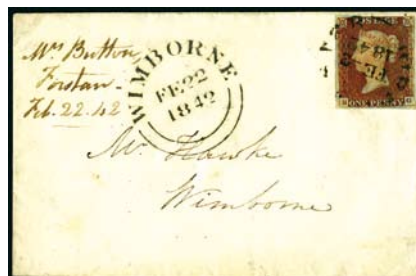 Mrs Button
Forstan
Feb. 22. 42
WIMBORNE
FE 22
1842
POSTAGE
FE
1842
ONE PENNY
Mr Hawke
Wimborne